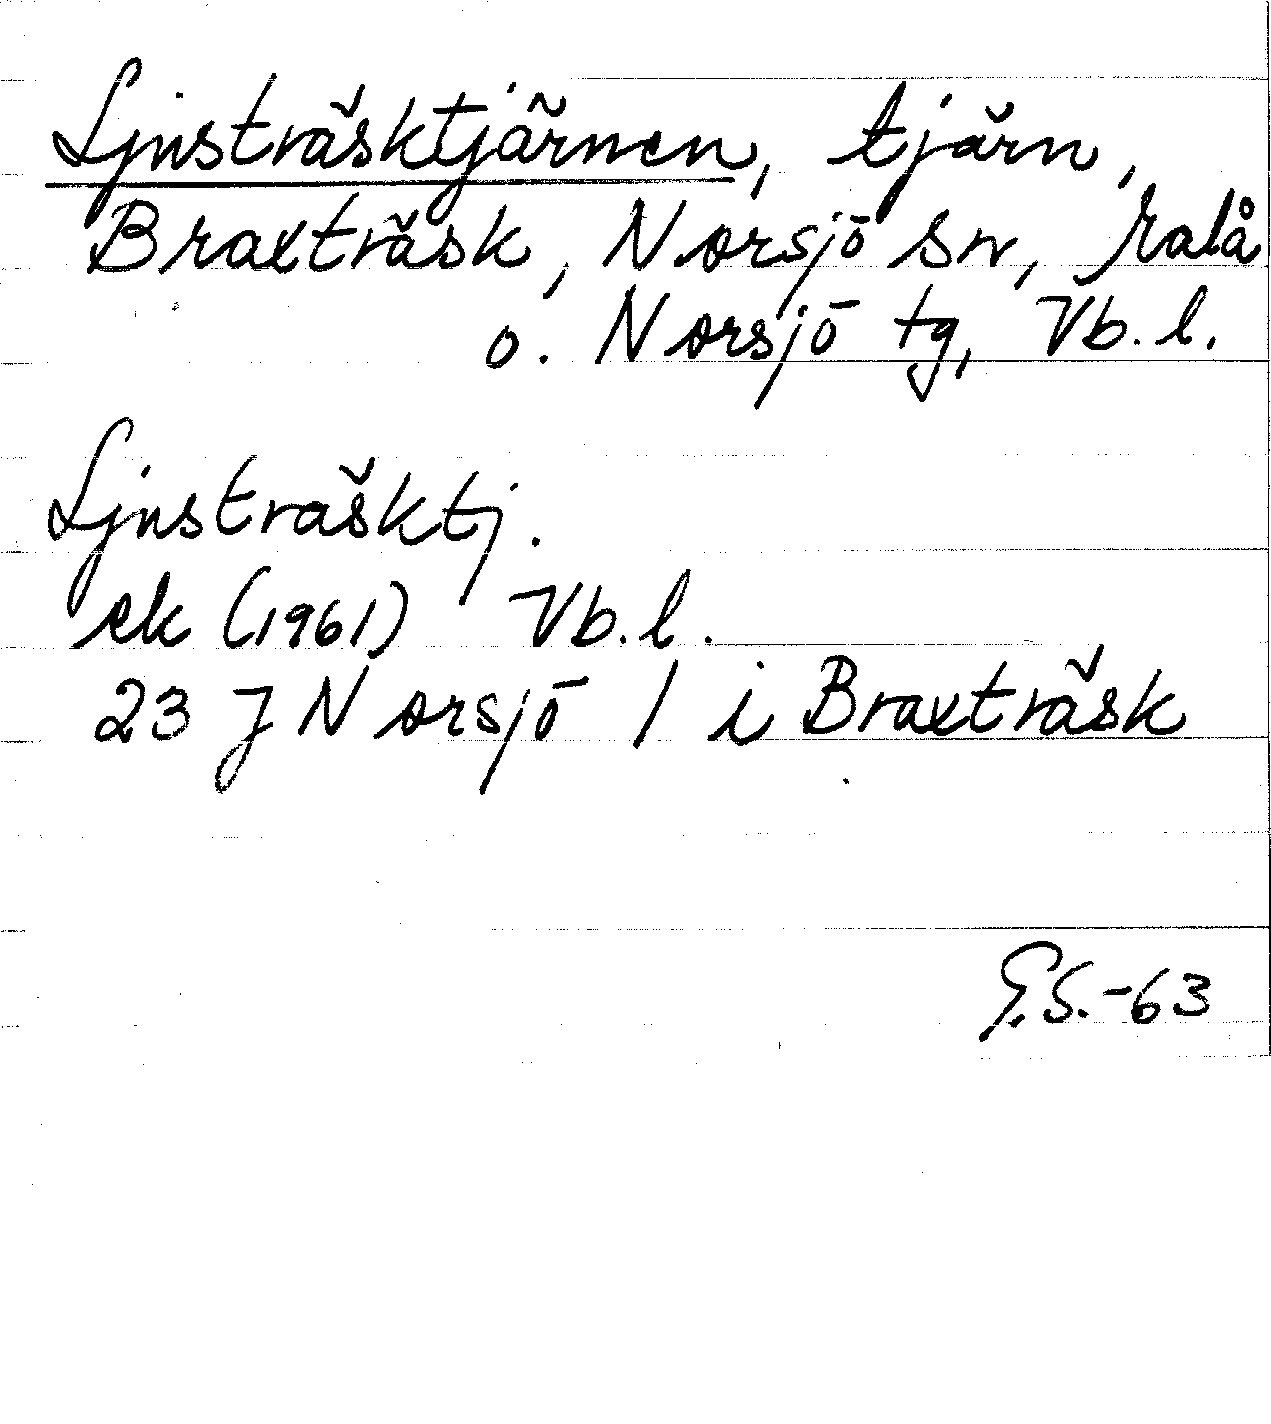 Ljusträsktjärnen, tjärn,
Braxträsk, Norsjö sn, Malå
o. Norsjö tg, Vb. l.
Ljusträsktj.
ek (1961) Vb. l.
23 J Norsjö / i Braxträsk
G.S.-63